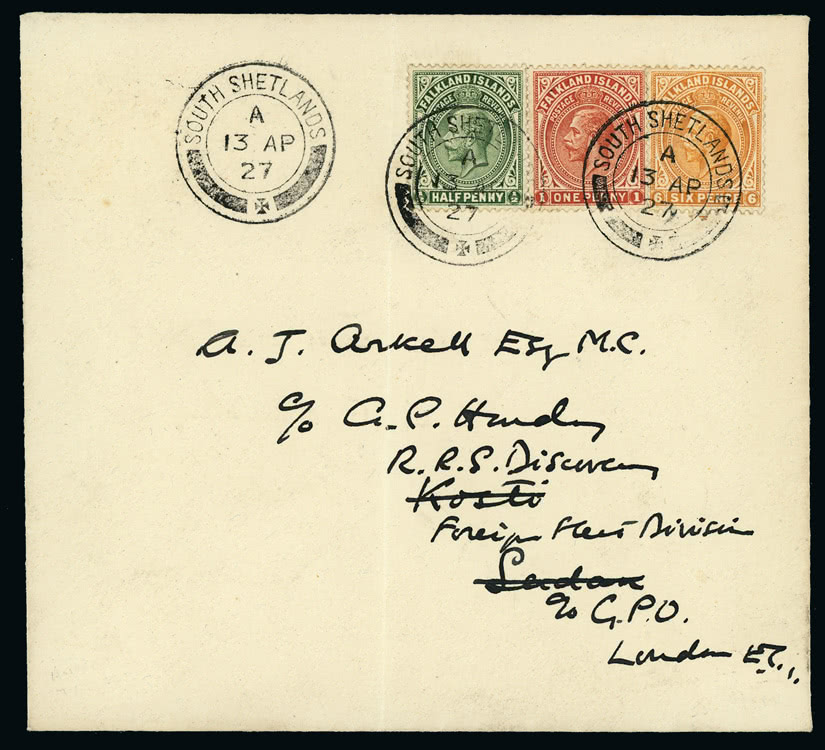 SOUTH SHETLANDS
A
13 AP
27
FALKLAND ISLANDS
POSTAGE REVENUE
½ HALF PENNY ½
FALKLAND ISLANDS
POSTAGE REVENUE
1 ONE PENNY 1
FALKLAND ISLANDS
6 SIX PENCE 6
SOUTH SHE
A
13 AP
27
SOUTH SHETLANDS
A
13 AP
27
A. J. Arkell Esq M.C.
c/o A.P. Hardy
R.R.S. Discovery
Kosti
Foreign Fleet Division
Sudan
c/o G.P.O.
London E.C.1.